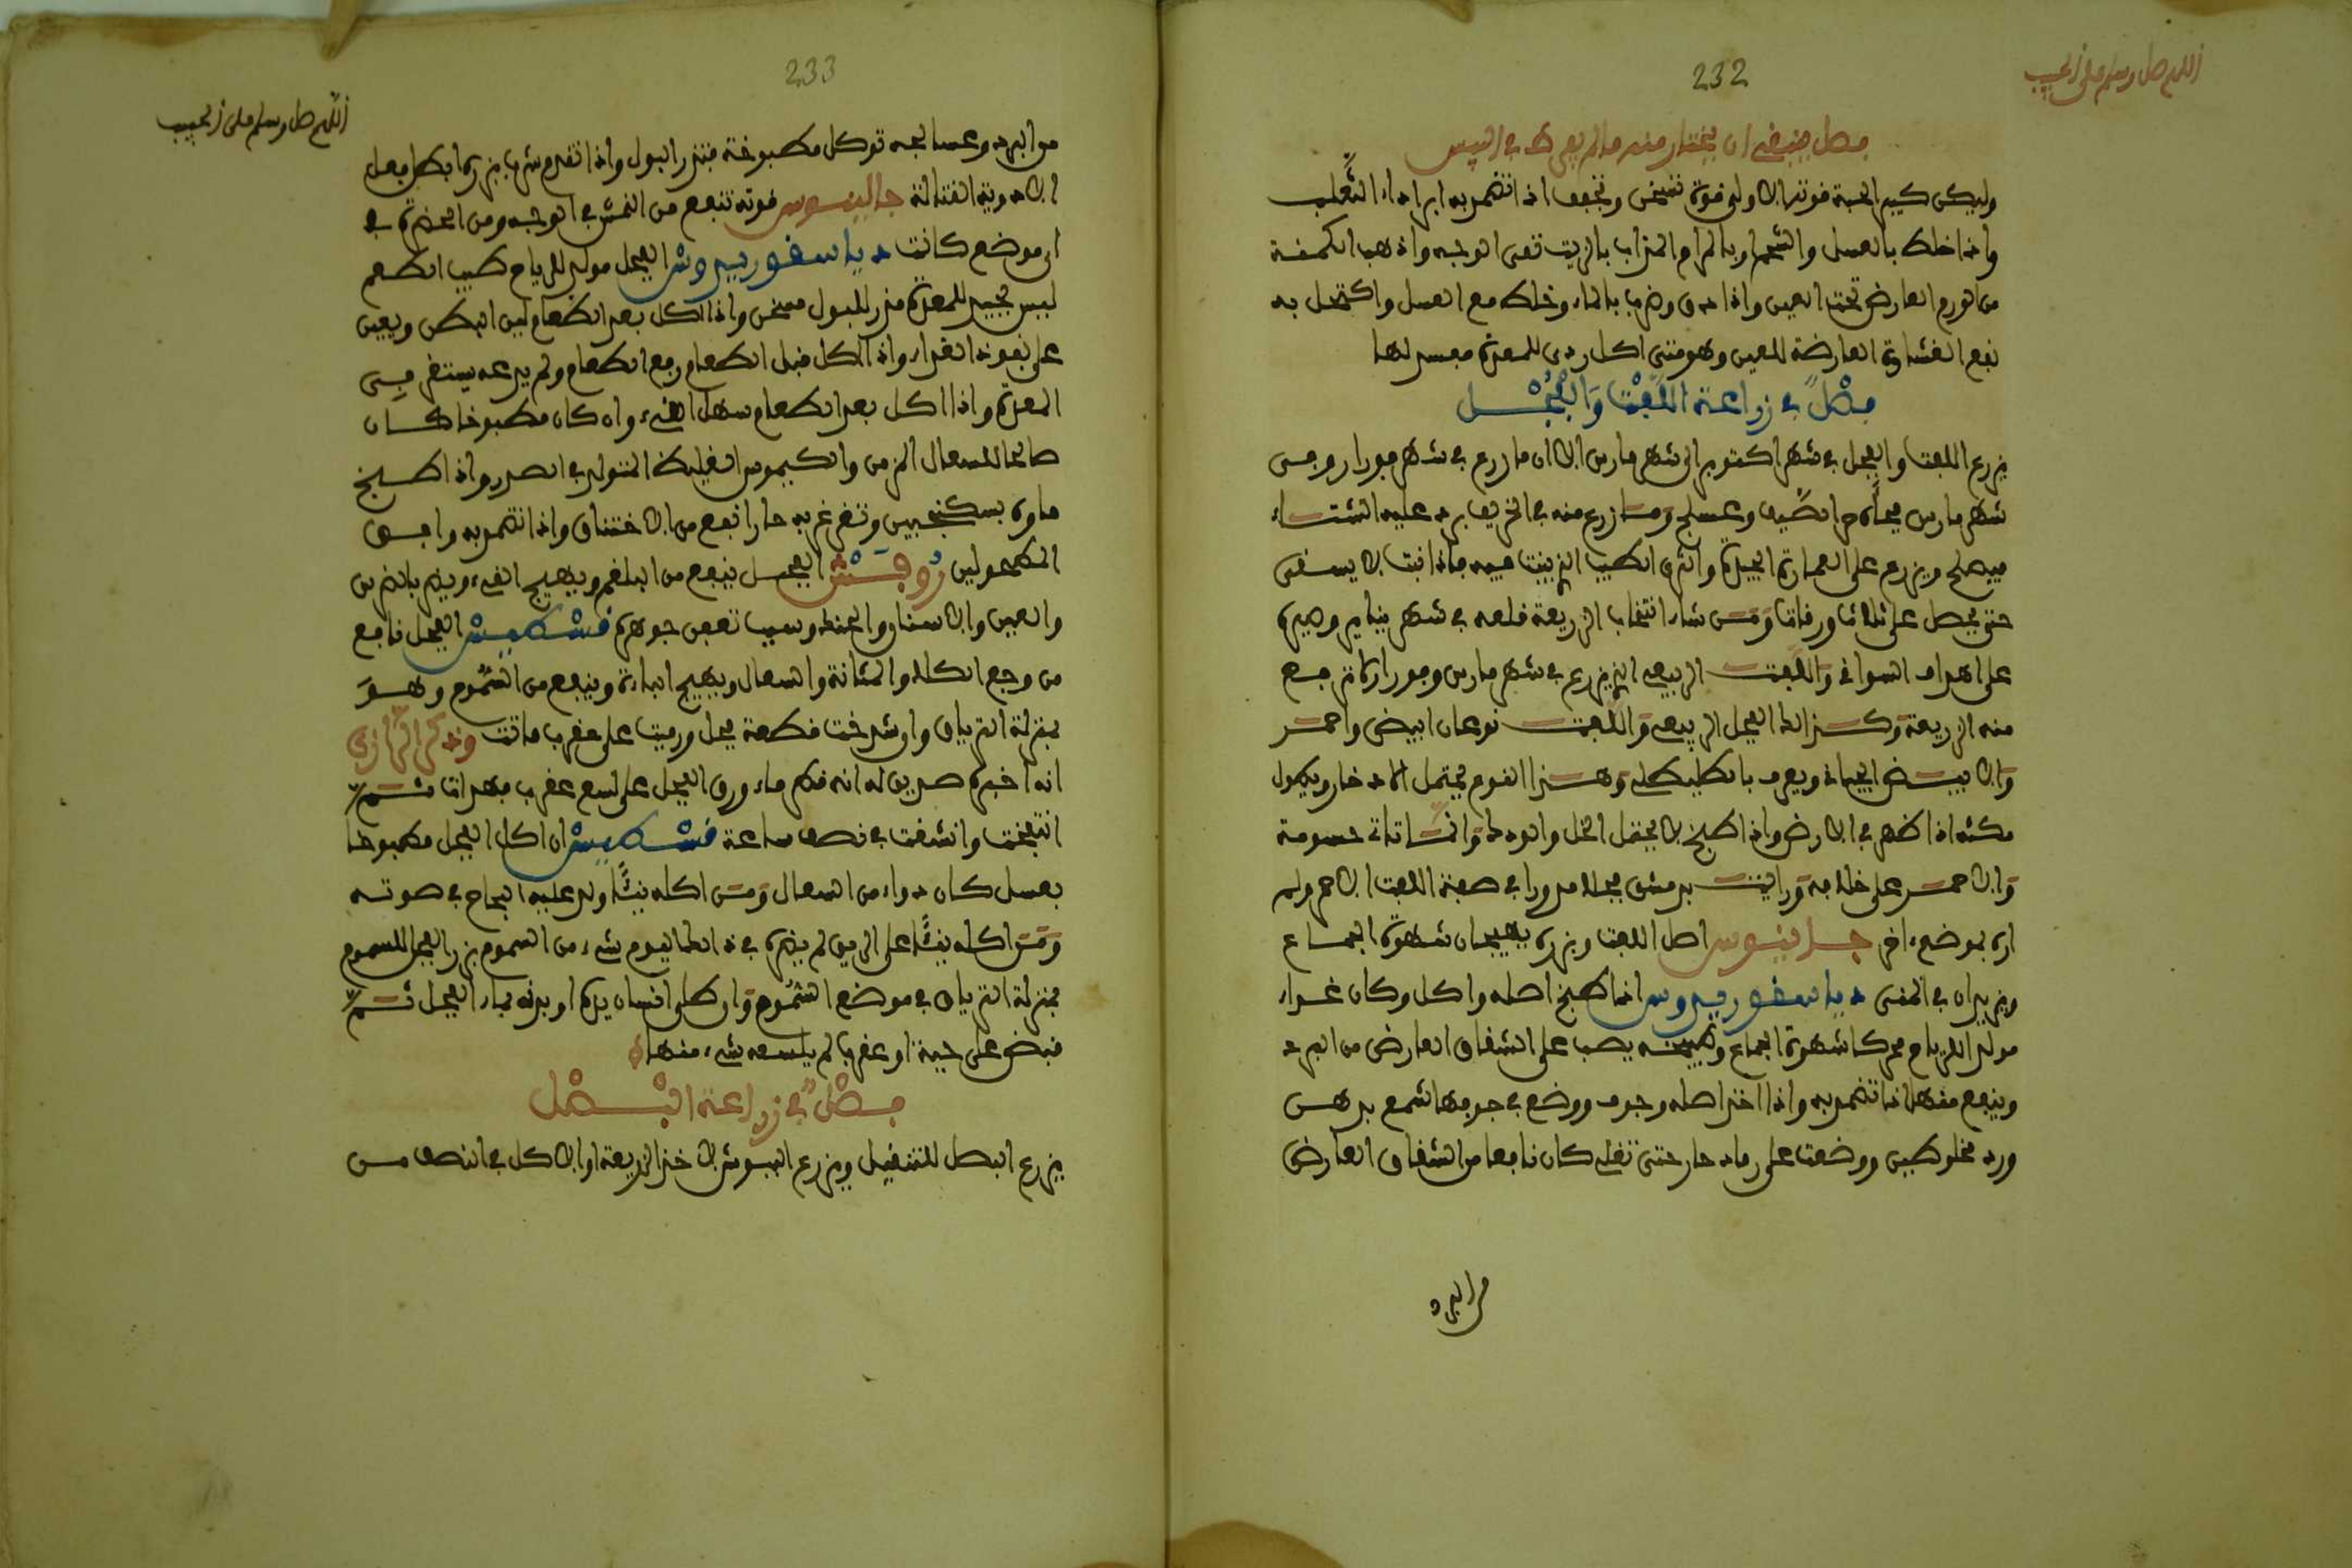 اللهم صل وسلم على الحبيب
232
فصل ينبغي ان يختار منه مالم يفرط في اليبس
وليكن كبير الحبة قوته الاولى قوة تسخن وتجفف اذا تضمد به ابرا داء الثعلب
واذا خلط بالعسل والشحم او بالموم المذاب بالزيت نقى الوجه واذهب الكمنة
من الورم العارض تحت العين واذا دق وضرب بالماء وخلط مع العسل واكتحل به
نفع الغشاوة العارضة للعين وهو متى اكل ردي للمعدة مفسد لها
فصل في زراعة اللفت والفجل
يزرع اللفت والفجل في شهر اكتوبر الى شهر مارس الا ان ما زرع في شهر فبراير وفى
شهر مارس وعسلج ومن زرع منه في الخريف برد عليه الشتاء
فيصلح ويزرع على العمارة الجيدة والثرى الطيب الذي ينبت فيه فاذا نبت لا يسقى
حتى يحصل على ثلاث ورقات ومن شاء انتخاب الزريعة قلعه في شهر يناير وصيره
على اهداف السواقي واللفت الربيعي الذي يزرع في شهر مارس وفبراير كان يرفع
منه الزريعة وكذلك الفجل الربيعي واللفت نوعان ابيض واحمر
والابيض الجيد ويعرف بالطليطلي وهذا النوع يحتمل الادخار ويطول
مكثه اذا ظهر في الارض واذا طبخ لا يحتمل الخل والودك وان تناتى دسومة
والاحمر على خلافه ورايت بدمشق فجلا مدورا في صفة اللفت الاحمر ولم
اره بموضع اخر جالينوس اصل اللفت وبزره يهيجان شهوة الجماع
ويزيدان في المنى دياسقوريدوس اذا طبخ اصله واكل وكان غذاء
مولدا للرياح محركا شهوة الجماع وطبيخه يصب على الشقاق العارض من البرد
وينفع منها اذا تضمد به واذا اخذ اصله وجوف ووضع في جوفها شمع بدهن
ورد مخلوطين ووضعت على رماد حار حتى تغلى كان نافعا من الشقاق العارض
من البرد
اللهم صل وسلم على الحبيب
233
من البرد وعسالجه توكل مطبوخة فتدر البول واذا تقدم شرب بزره ابطل فعل
الادوية القتالة جالينوس قوته تنفع من النمش في الوجه ومن الخضرة في
اى موضع كانت دياسقوريدوس الفجل مولد للرياح طيب الطعم
ليس بجيد للمعدة مدر للبول مسخن واذا اكل بعد الطعام لين البطن ويعين
على نفوذ الغذاء واذا اكل قبل الطعام رفع الطعام ولم يدعه يستقر في
المعدة واذا اكل بعد الطعام سهل القيء وان كان مطبوخا كان
صالحا للسعال المزمن والكيموس الغليظ المتولد في الصدر واذا طبخ
ماوه بسكنجبين وتغرغر به حارا نفع من الاختناق واذا تضمد به وافق
المطحولين روفس الفجل ينفع من البلغم ويهيج القيء ويضر بالضرس
والعين والاسنان والحنك وسبب تعفن جوهره قسطس الفجل نافع
من وجع الكلا والمثانة والسعال ويهيج الباءة وينفع من السموم وهو
بمنزلة الترياق وان شدخت قطعة فجل ورميت على عقرب ماتت وذكر الرازى
انه اخبره صديق له انه قطر ماء ورق الفجل على لسع عقرب فهدات ثم
انتفخت وانشقت في نصف ساعة قسطس ان اكل الفجل مطبوخا
بعسل كان دواء من السعال ومن اكله نيئا ولد عليه البحاح في صوته
ومن اكله نيئا على الريق لم يضره في ذلك اليوم شيء من السموم بزر الفجل للسموم
بمنزلة الترياق في موضع السموم وان طلى انسان يده او بدنه بماء الفجل ثم
قبض على حية او عقرب لم يلسعه شيء منها
فصل في زراعة البصل
يزرع البصل للتنقيل ويزرع البسوش لاخذ الزريعة او الاكل في النصف من